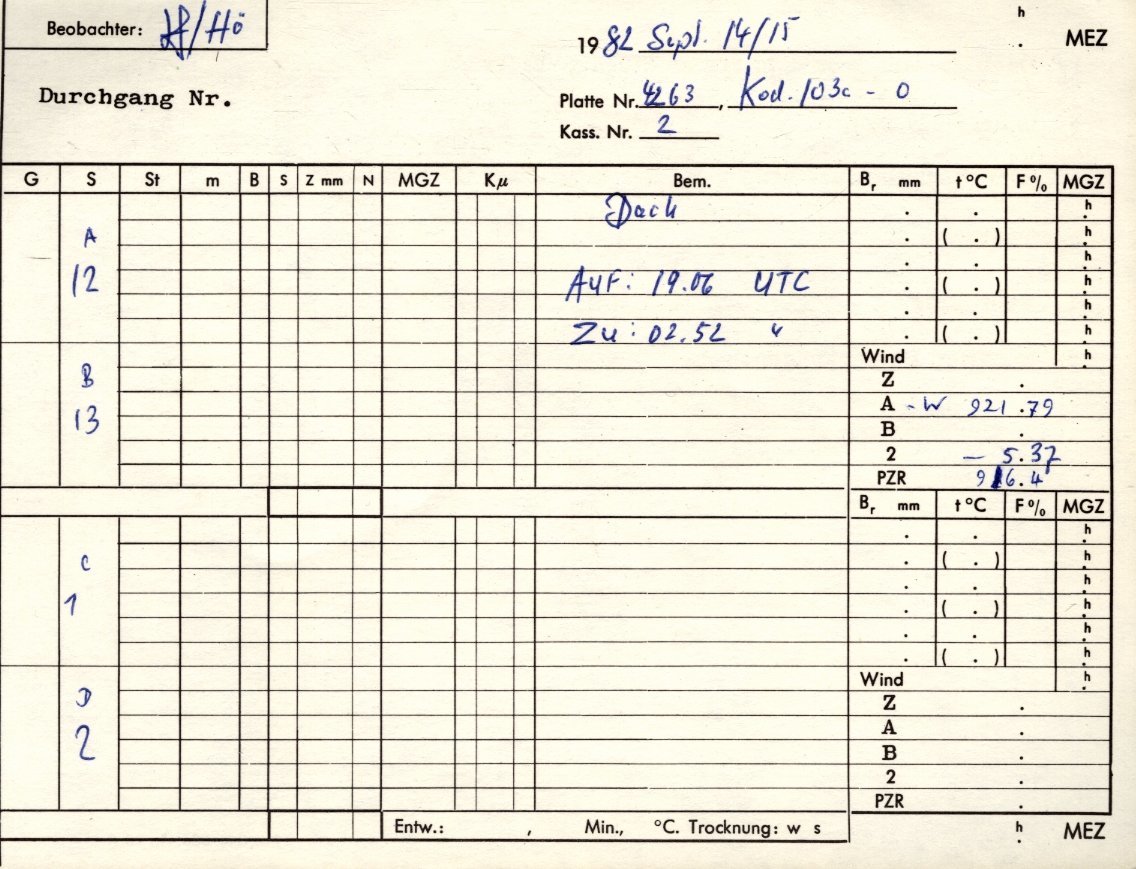 Beobachter: Hf/Hö
h
19 82 Sept. 14/15 . MEZ
Durchgang Nr.
Platte Nr. 4263, Kod. 103a - O
Kass. Nr. 2
G S St m B S Z mm N MGZ Kμ Bem. Br mm t °C F % MGZ
Dach . . h
A . ( . ) h
. . h
12 Auf: 19.06 UTC . ( . ) h
. . h
Zu: 02.52 " . ( . ) h
Wind h
B Z .
13 A - W 921.79
B .
2 - 5.37
PZR 916.4
Br mm t °C F % MGZ
. . h
C . ( . ) h
. . h
1 . ( . ) h
. . h
. ( . ) h
Wind h
D Z .
A .
2 B .
2 .
PZR .
Entw.: , Min., °C. Trocknung: w s h . MEZ